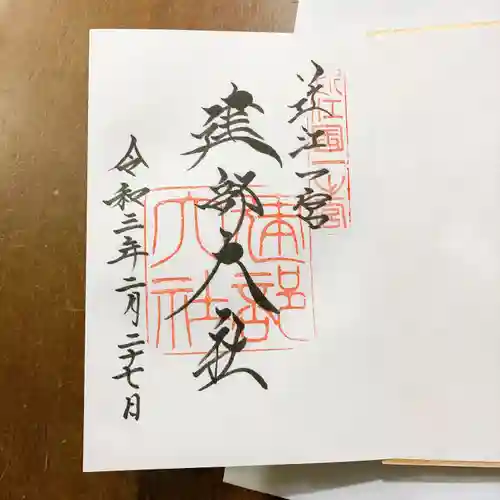 近江一宮
近江国一之宮
建部大社
建部大社
令和二年二月二十七日